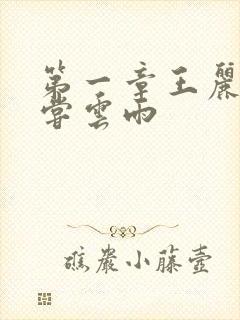 第一章王麗
嘗雲雨
礁巖小藤壺